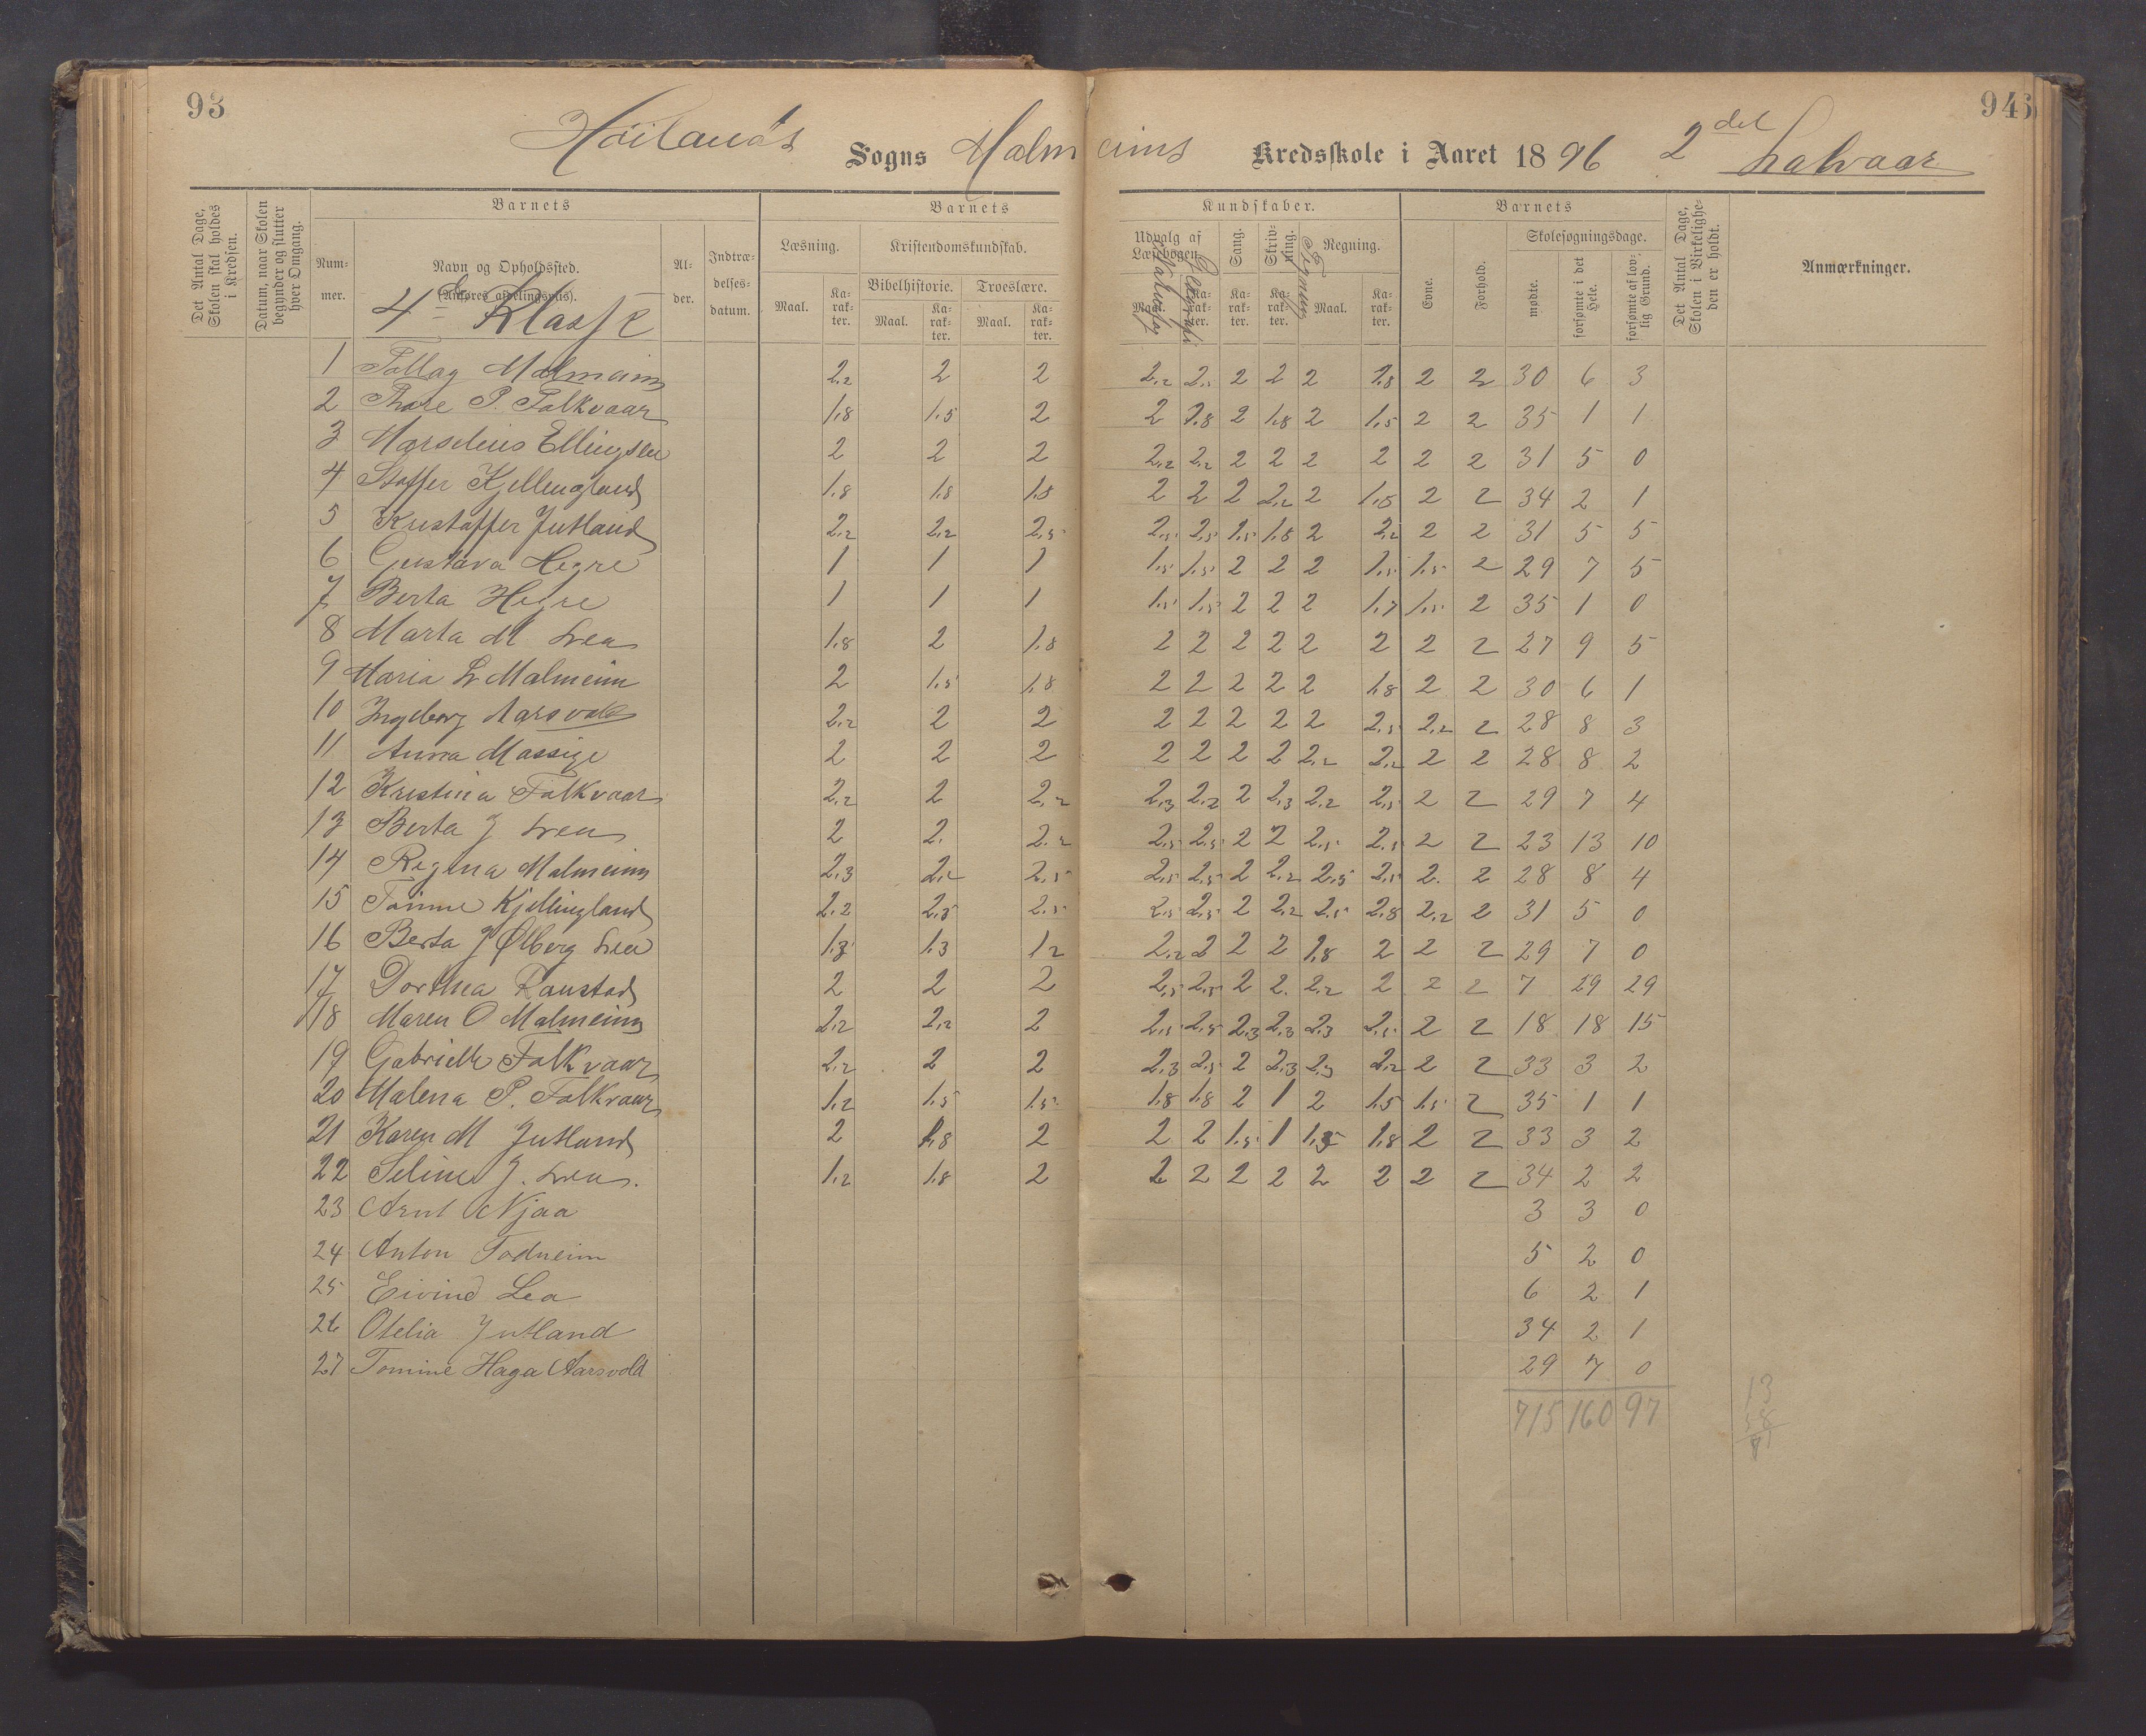 93
946
Høilands Sogns Malmeims Kredsskole i Aaret 1896 2det halvaar
Det Antal Dage, Skolen skal holdes i Kredsen.
Datum, naar Skolen begynder og slutter hver Omgang.
Barnets
Barnets
Kundskaber.
Barnets
Nummer.
Navn og Opholdssted.
(Anføres afdelingsvis).
4de Klasse
Alder.
Indtrædelsesdatum.
Læsning.
Kristendomskundskab.
Bibelhistorie.
Troeslære.
Maal.
Karakter.
Maal.
Karakter.
Maal.
Karakter.
Udvalg af Læsebogen.
Maal.
Karakter.
Sang.
Karakter.
Skrivning.
Karakter.
Tegning
Regning.
Maal.
Karakter.
Evne.
Forhold.
Skolesøgningsdage.
mødte.
forsømte i det Hele.
forsømte af lovlig Grund.
Det Antal Dage, Skolen i Virkeligheden er holdt.
Anmærkninger.
1 Tollag Malmeim 2,2 2 2 2,2 2,5 2 2 2 1,8 2 2 30 6 3
2 Thore P. Folkvaar 1,8 1,5 2 2 1,8 2 1,8 2 1,5 2 2 35 1 1
3 Marselius Ellingsen 2 2 2 2,2 2,2 2 2 2 2 2 2 31 5 0
4 Staffer Kjellingland 1,8 1,8 1,8 2 2 2 2,2 2 1,8 2 2 34 2 1
5 Kristoffer Jutland 2,2 2,2 2,5 2,5 2,5 1,5 1,8 2 2,2 2 2 31 5 5
6 Gustava Hegre 1 1 1 1,5 1,5 2 2 2 1,5 1,5 2 29 7 5
7 Berta Hegre 1 1 1 1,5 1,5 2 2 2 1,7 1,5 2 35 1 0
8 Marta M Lea 1,8 2 1,8 2 2 2 2 2 2 2 2 27 9 5
9 Maria L Malmeim 2 1,5 1,8 2 2 2 2 2 1,8 2 2 30 6 1
10 Ingeborg Aarsvold 2,2 2 2 2 2 2 2 2 2,5 2,2 2 28 8 3
11 Anna Massige 2 2 2 2 2 2 2 2,2 2,2 2 2 28 8 2
12 Kristina Folkvaar 2,2 2 2,2 2,3 2,2 2 2,3 2,2 2,5 2 2 29 7 4
13 Berta J Lea 2 2. 2,2 2,5 2,5 2 2 2,5 2,5 2 2 23 13 10
14 Regina Malmeim 2,3 2,2 2,5 2,5 2,5 2 2,2 2,5 2,5 2. 2 28 8 4
15 Tomine Kjellingland 2,2 2,5 2,5 2,5 2,5 2 2,2 2,5 2,8 2,2 2 31 5 0
16 Berta J Ølberg Lea 1,3 1,3 1,2 2,2 2 2 2 1,8 2 2 2 29 7 0
17 Dorthea Raustad 2 2 2 2,5 2,5 2 2. 2,2 2 2 2 7 29 29
18 Maren O Malmeim 2,2 2,2 2 2,5 2,5 2,3 2,3 2,3 2,5 2 2 18 18 15
19 Gabrielle Folkvaar 2,2 2 2 2,3 2,5 2 2,3 2,5 2,2 2 2 33 3 2
20 Malena P. Folkvaar 1,2 1,5 1,5 1,8 1,8 2 1 2 1,5 1,5 2 35 1 1
21 Karen M Jutland 2 1,8 2 2 2 1,5 1 1,5 1,8 2 2 33 3 2
22 Seline J. Lea. 1,2 1,8 2 2 2 2 2 2 2 2 2 34 2 2
23 Arnt Njaa 3 3 0
24 Anton Todneim 5 2 0
25 Eivind Lea 6 2 1
26 Otelia Jutland 34 2 1
27 Tomine Haga Aarsvold 29 7 0
715 160 97
13